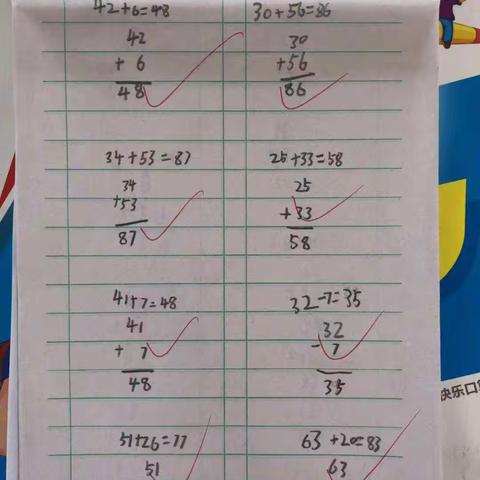 42+6=48
42
+ 6
48
30+56=86
30
+56
86
34+53=87
34
+53
87
25+33=58
25
+33
58
41+7=48
41
+ 7
48
32-7=35
32
- 7
35
51+26=77
51
63+20=83
63
快乐口